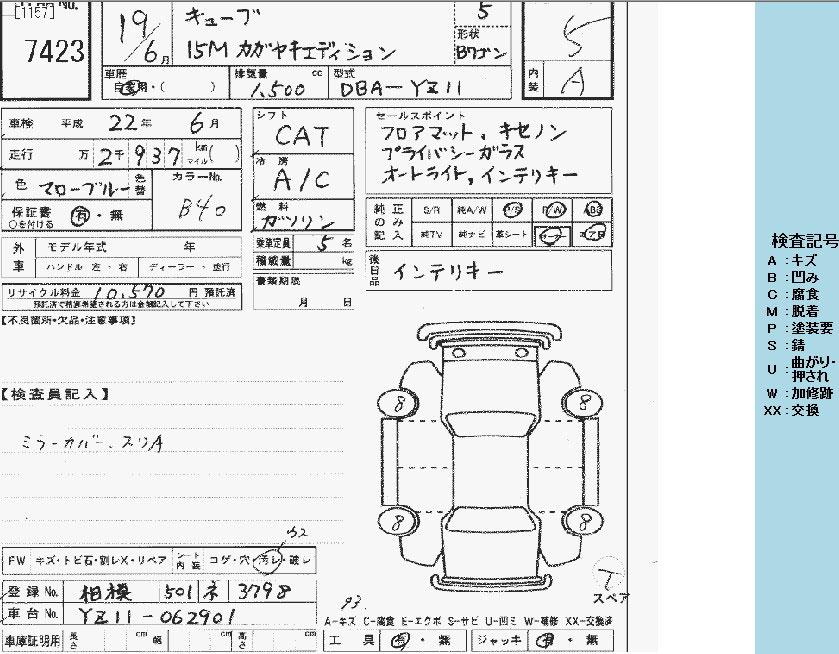 [1157]
7423
19/6月
キューブ
15M カガヤキエディション
5
形状
Bワゴン
5
車歴
自家用・( )
排気量 cc
1,500
型式
DBA-YZ11
内装
A
車検 平成 22年 6月
走行 万 2千937 km マイル( )
色 マローブルー 色替
カラーNo.
B40
保証書 有・無
○を付ける
シフト
CAT
冷房
A/C
燃料
ガソリン
乗車定員 5名
積載量 kg
セールスポイント
フロアマット、キセノン
プライバシーガラス
オートライト,インテリキー
純正のみ記入
S/R 純A/W P/S P/W ABS
純TV 純ナビ 革シート エアB
外車
モデル年式 年
ハンドル 左・右 ディーラー・並行
後日品
インテリキー
書類期限
月 日
リサイクル料金 10,570 円 預託済
預託済で精算希望される方は金額記入して下さい
【不良箇所・欠品・注意事項】
【検査員記入】
ミラーカバースリA
8
8
8
8
FW キズ・トビ石・割レX・リペア
シート内装 コゲ・穴・汚レ・破レ
登録No. 相模 501 ネ 3798
車台No. YZ11-062901
車庫証明用 長さ cm 幅 cm 高さ cm
93.
T
スペア
A-キズ C-腐食 E-エクボ S-サビ U-凹ミ W-補修 XX-交換済
工具 有・無 ジャッキ 有・無
検査記号
A:キズ
B:凹み
C:腐食
M:脱着
P:塗装要
S:錆
U:曲がり・押され
W:加修跡
XX:交換